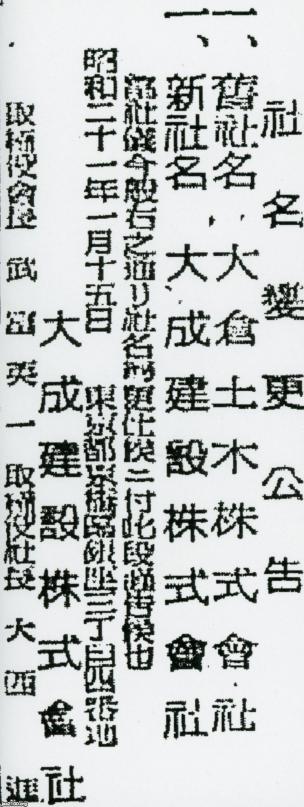 社名變更公告
一、舊社名、大倉土木株式會社
一、新社名 大成建設株式會社
弊社儀今般右之通リ社名變更仕候ニ付此段謹告候也
昭和二十一年一月十五日 東京都京橋區銀座三丁目四番地
大成建設株式會社
取締役會長 武富英一 取締役社長 大西